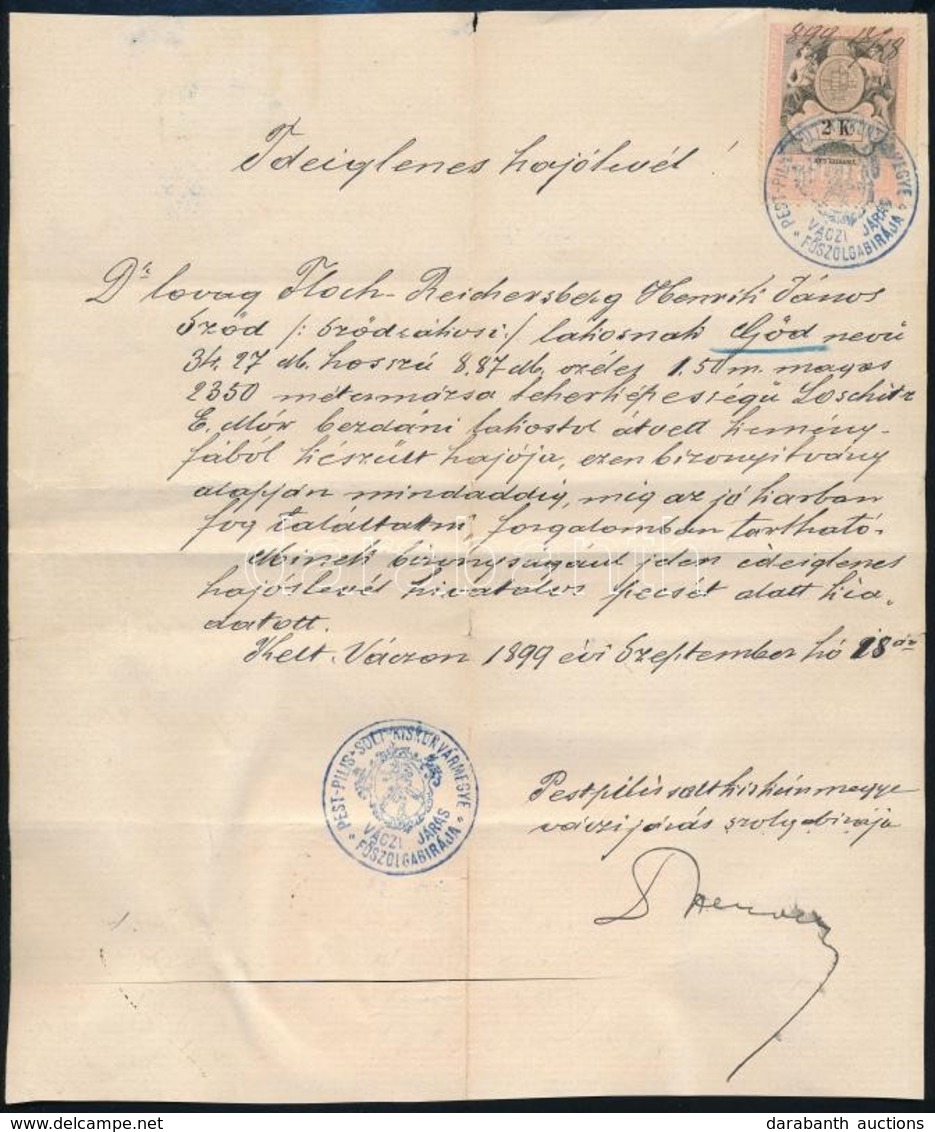 899 18/18
2 K
PEST-PILIS-SOLT-KISKUN VÁRMEGYE
VÁCZI JÁRÁS
FŐSZOLGABIRÁJA
Ideiglenes hajólevél!
Dr. lovag Floch-Reichersberg Henrik János
Sződ /: sződrákosi :/ lakosnak Göd nevű
34.27 m. hosszú 8.87 m. széles 1.50 m. magas
2350 métermázsa teherképességű Loschitz
E. Mór bezdáni lakostol átvett kemény-
fából készült hajója, ezen bizonyitvány
alapján mindaddig, mig az jó karban
fog találtatni, forgalomban tartható.
Minek bizonyságául jelen ideiglenes
hajóslevél hivatalos pecsét alatt kia-
datott.
Kelt. Váczon 1899 évi Szeptember hó 18 án
PEST-PILIS-SOLT-KISKUN VÁRMEGYE
VÁCZI JÁRÁS
FŐSZOLGABIRÁJA
Pestpilissoltkiskúnmegye
váczi járás szolgabirája
darabanth
www.darabanth.com
darabanth auctions